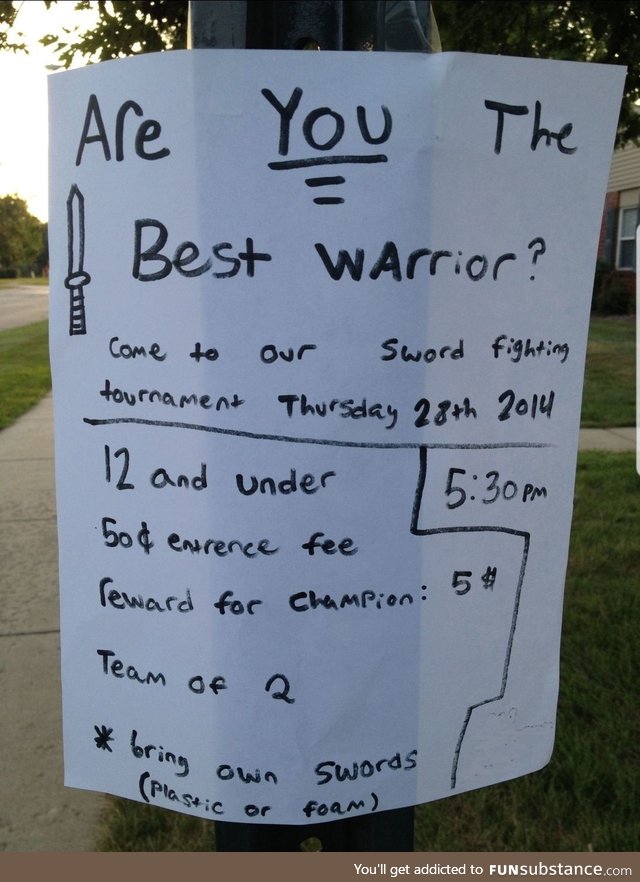 Are YOU The
Best Warrior?
Come to our Sword fighting
tournament Thursday 28th 2014
12 and under
5:30 PM
50¢ entrence fee
reward for Champion: 5$
Team of 2
* bring own Swords
(Plastic or foam)
You'll get addicted to FUNsubstance.com